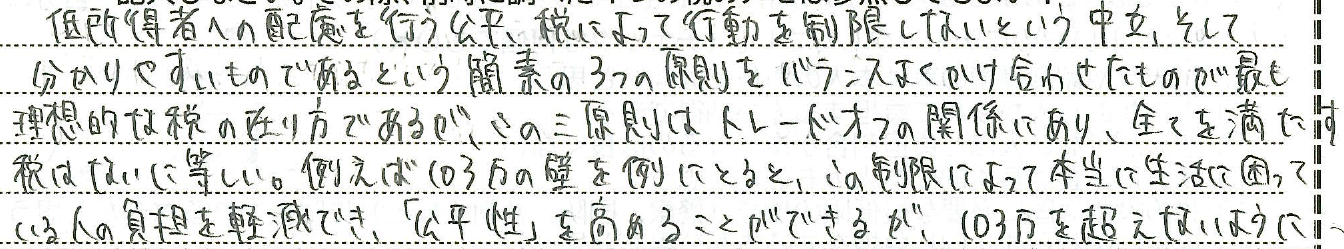 低所得者への配慮を行う公平、税によって行動を制限しないという中立、そして
分かりやすいものであるという簡素の3つの原則をバランスよくかけ合わせたものが最も
理想的な税の在り方であるが、この三原則はトレードオフの関係にあり、全てを満たす
税はないに等しい。例えば103万の壁を例にとると、この制限によって本当に生活に困って
いる人の負担を軽減でき、「公平性」を高めることができるが、103万を超えないように